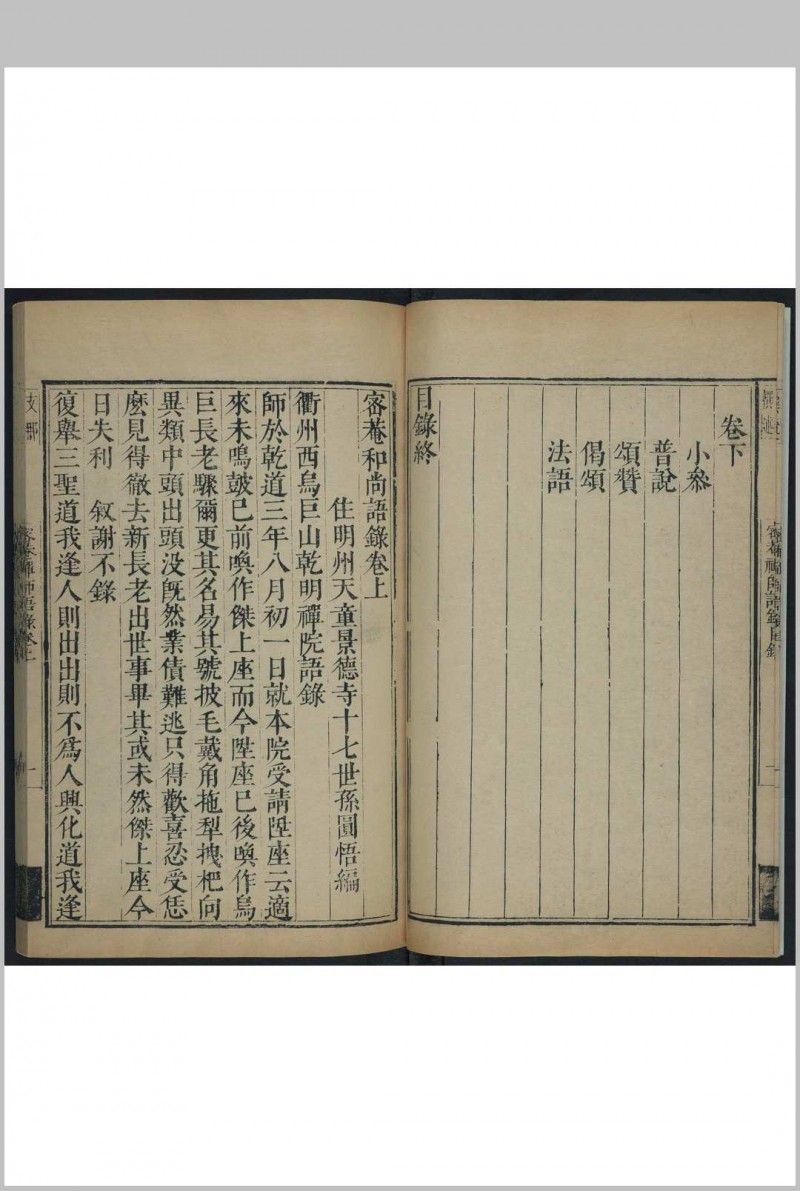 卷下
小叅
普說
頌贊
偈頌
法語
目錄終
密菴禪師語錄目錄
一
密菴和尚語錄卷上
住明州天童景德寺十七世孫圓悟編
衢州西烏巨山乾明禪院語錄
師於乾道三年八月初一日就本院受請陞座云適
來未鳴皷已前喚作傑上座而今陞座已後喚作烏
巨長老驟爾更其名易其號披毛戴角拖犁拽杷向
異類中頭出頭没旣然業債難逃只得歡喜忍受恁
麽見得徹去新長老出世事畢其或未然傑上座今
日失利　叙謝不錄
復舉三聖道我逢人則出出則不爲人興化道我逢
支那
密菴禪師語錄卷上
一